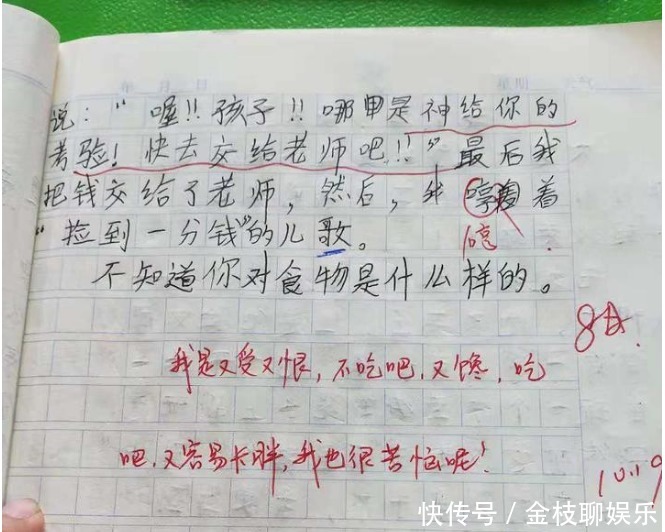 说："喔!!孩子!!哪里是神给你的
考验!快去交给老师吧!!"最后我
把钱交给了老师，然后，我 着
"捡到一分钱"的儿歌。
哼
不知道你对食物是什么样的。
我是又爱又恨，不吃吧，又馋，吃
吧，又容易长胖，我也很苦恼呢!
10.19
快传号 / 金枝聊娱乐